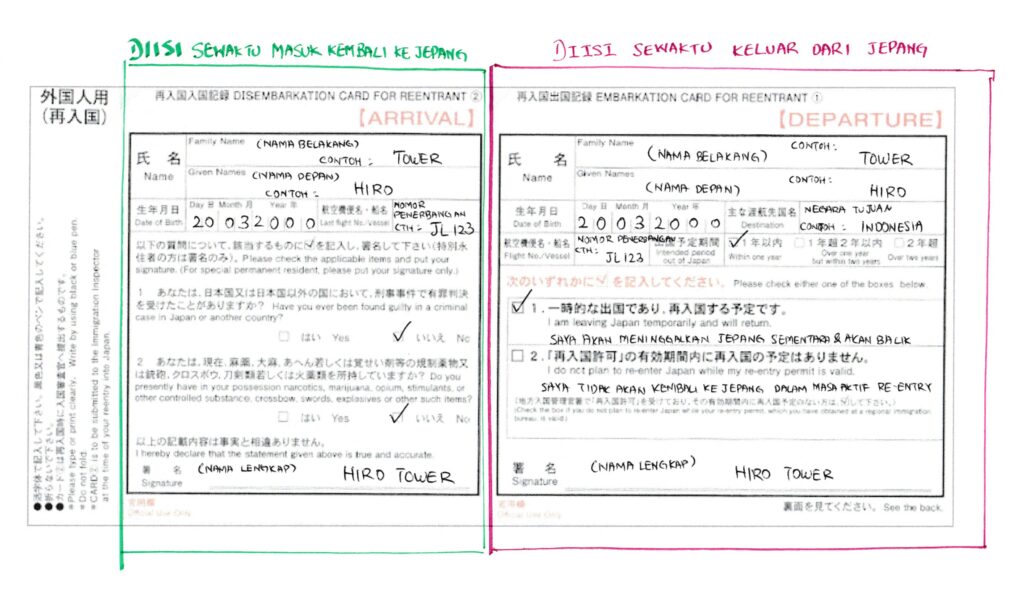 DIISI SEWAKTU MASUK KEMBALI KE JEPANG
DIISI SEWAKTU KELUAR DARI JEPANG
外国人用
(再入国)
●活字体で記入して下さい。黒色又は青色のペンで記入してください。
●折らないで下さい。
●カード②は再入国時に入国審査官へ提出するものです。
＊Please type or print clearly. Write by using black or blue pen.
＊Do not fold.
＊CARD② is to be submitted to the Immigration Inspector
at the time of your reentry into Japan.
再入国入国記録 DISEMBARKATION CARD FOR REENTRANT ②
【ARRIVAL】
氏 名
Name
Family Name (NAMA BELAKANG)
CONTOH : TOWER
Given Names (NAMA DEPAN)
CONTOH : HIRO
生年月日
Date of Birth
Day 日 Month 月 Year 年
20 03 2000
航空機便名・船名
Last flight No./Vessel
NOMOR
PENERBANGAN
CTH : JL 123
以下の質問について、該当するものに✓を記入し、署名して下さい(特別永
住者の方は署名のみ)。Please check the applicable items and put your
signature. (For special permanent resident, please put your signature only.)
1 あなたは、日本国又は日本国以外の国において、刑事事件で有罪判決
を受けたことがありますか? Have you ever been found guilty in a criminal
case in Japan or another country?
□ はい Yes ✓ いいえ No
2 あなたは、現在、麻薬、大麻、あへん若しくは覚せい剤等の規制薬物又
は銃砲、クロスボウ、刀剣類若しくは火薬類を所持していますか? Do you
presently have in your possession narcotics, marijuana, opium, stimulants, or
other controlled substance, crossbow, swords, explosives or other such items?
□ はい Yes ✓ いいえ No
以上の記載内容は事実と相違ありません。
I hereby declare that the statement given above is true and accurate.
署 名
Signature
(NAMA LENGKAP) HIRO TOWER
官用欄
Official Use Only
再入国出国記録 EMBARKATION CARD FOR REENTRANT ①
【DEPARTURE】
氏 名
Name
Family Name (NAMA BELAKANG) CONTOH : TOWER
Given Names (NAMA DEPAN) CONTOH : HIRO
生年月日
Date of Birth
Day 日 Month 月 Year 年
20 03 2000
主な渡航先国名
Destination
NEGARA TUJUAN
CONTOH : INDONESIA
航空機便名・船名
Flight No./Vessel
NOMOR PENERBANGAN
CTH : JL 123
出国予定期間
Intended period
out of Japan
✓1年以内
Within one year
□1年超2年以内
Over one year
but within two years
□2年超
Over two years
次のいずれかに✓を記入してください。 Please check either one of the boxes below.
✓ 1. 一時的な出国であり、再入国する予定です。
I am leaving Japan temporarily and will return.
SAYA AKAN MENINGGALKAN JEPANG SEMENTARA & AKAN BALIK
□ 2.「再入国許可」の有効期間内に再入国の予定はありません。
I do not plan to re-enter Japan while my re-entry permit is valid.
SAYA TIDAK AKAN KEMBALI KE JEPANG DALAM MASA AKTIF RE-ENTRY
(地方入国管理官署で「再入国許可」を受けており、その有効期間内に再入国予定のない方は、✓して下さい。)
(Check the box if you do not plan to re-enter Japan while your re-entry permit, which you have obtained at a regional immigration
bureau, is valid.)
署 名
Signature
(NAMA LENGKAP) HIRO TOWER
官用欄
Official Use Only
裏面を見てください。 See the back.